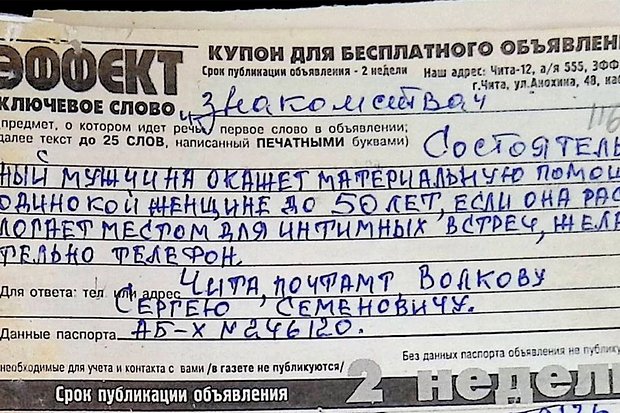 ЭФФЕКТ КУПОН ДЛЯ БЕСПЛАТНОГО ОБЪЯВЛЕНИ
Срок публикации объявления - 2 недели Наш адрес: Чита-12, а/я 555, ЭФФ
г.Чита, ул.Анохина, 48, каб
КЛЮЧЕВОЕ СЛОВО "знакомства"
116
предмет, о котором идет речь, первое слово в объявлении;
далее текст до 25 СЛОВ, написанный ПЕЧАТНЫМИ буквами)
СОСТОЯТЕЛЬ
НЫЙ МУЖЧИНА ОКАЖЕТ МАТЕРИАЛЬНУЮ ПОМОЩ
ОДИНОКОЙ ЖЕНЩИНЕ ДО 50 ЛЕТ, ЕСЛИ ОНА РАС
ЛОГАЕТ МЕСТОМ ДЛЯ ИНТИМНЫХ ВСТРЕЧ, ЖЕЛА
ТЕЛЬНО ТЕЛЕФОН.
Для ответа: тел или адрес ЧИТА, ПОЧТАМТ, ВОЛКОВУ
СЕРГЕЮ СЕМЕНОВИЧУ.
Данные паспорта АБ-Х №246120.
Без данных паспорта объявление не публику
необходимые для учета и контакта с вами /в газете не публикуются/
Срок публикации объявления 2 недели